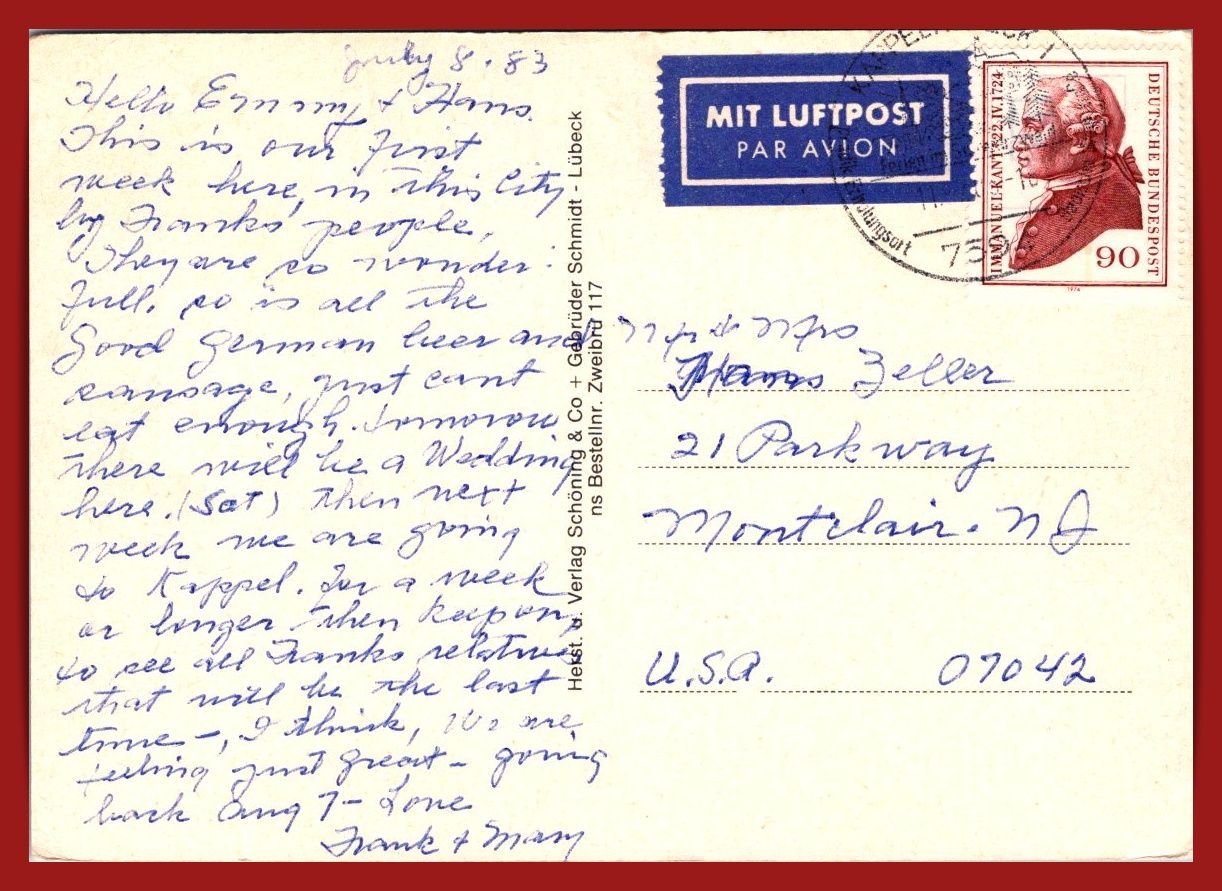 july 8. 83
Hello Emmy + Hans.
This is our first
week here, in this City
by Franks people,
They are so wonder-
full. so is all the
Good German beer and
sausage, just cant
eat enough. tomorow
there will be a Wedding
here. (Sat) then next
week we are going
to Kappel. for a week
or longer then keep on,
to see all Franks relatives
that will be the last
time -, I think, We are
feeling just great - going
back Aug 7 - Love
Frank + Mary
Herst. u. Verlag Schöning & Co + Gebrüder Schmidt - Lübeck
ns Bestellnr. Zweibrü 117
MIT LUFTPOST
PAR AVION
IMMANUEL KANT * 22.IV.1724
DEUTSCHE BUNDESPOST
90
1974
holungsort
759
Mr & Mrs
Hans Zeller
21 Parkway
Montclair. NJ
U.S.A. 07042